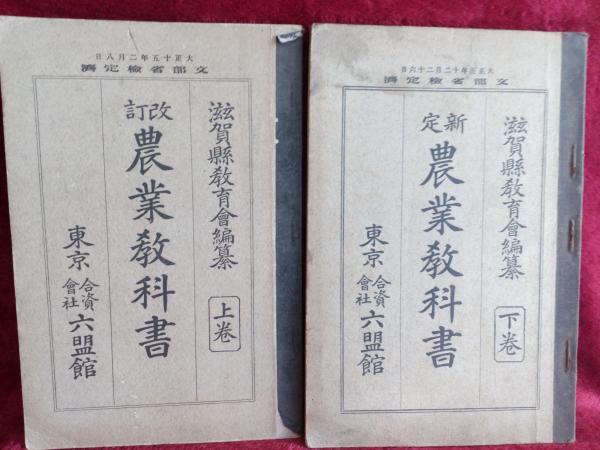 大正十五年二月八日
文部省檢定濟
滋賀縣教育會編纂
上卷
改訂
農業教科書
東京
合資會社
六盟館
大正年十二月二十六日
文部省檢定濟
滋賀縣教育會編纂
下卷
新定
農業教科書
東京
合資會社
六盟館